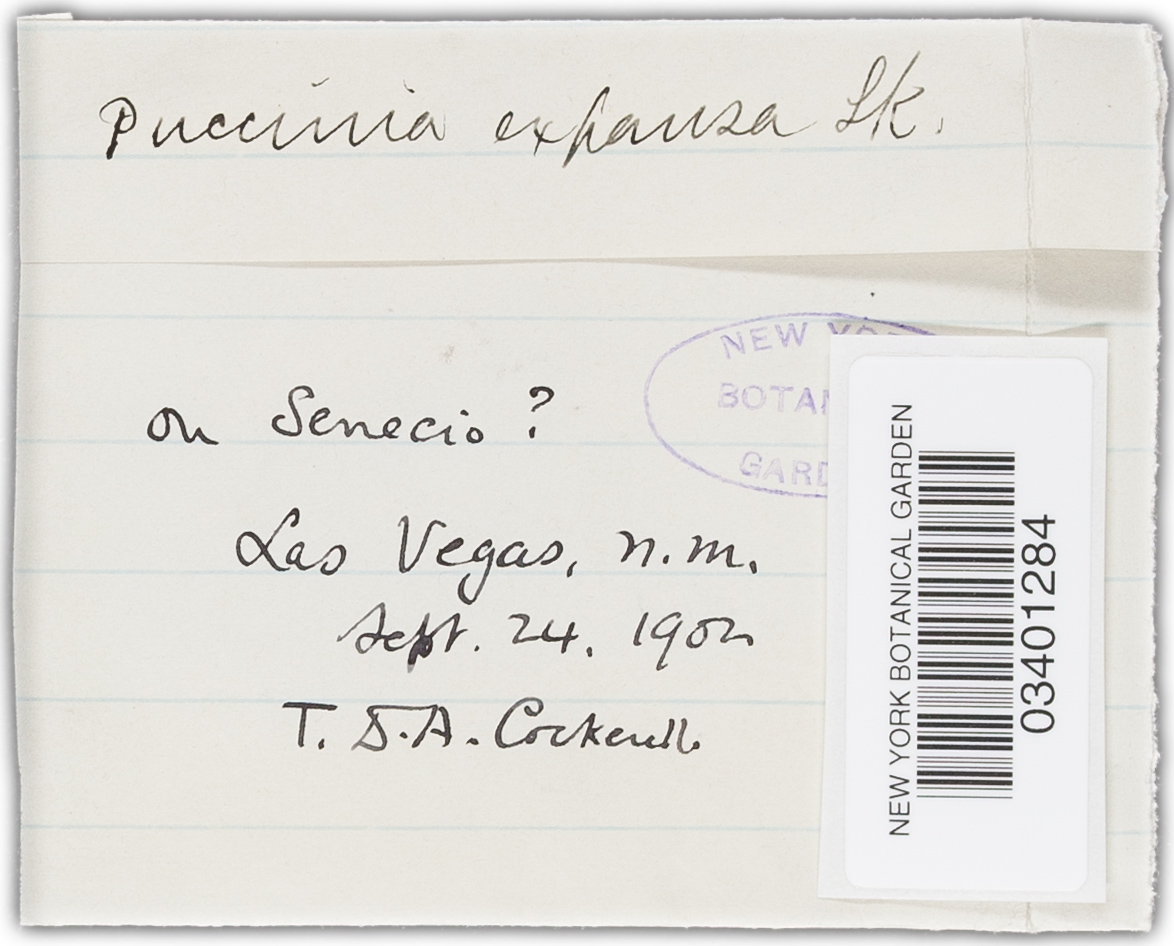 Puccinia expansa Lk.
on Senecio?
Las Vegas, n.m.
Sept. 24. 1902
T. D. A. Cockerell.
NEW
BOTAN
GARD
NEW YORK BOTANICAL GARDEN
03401284